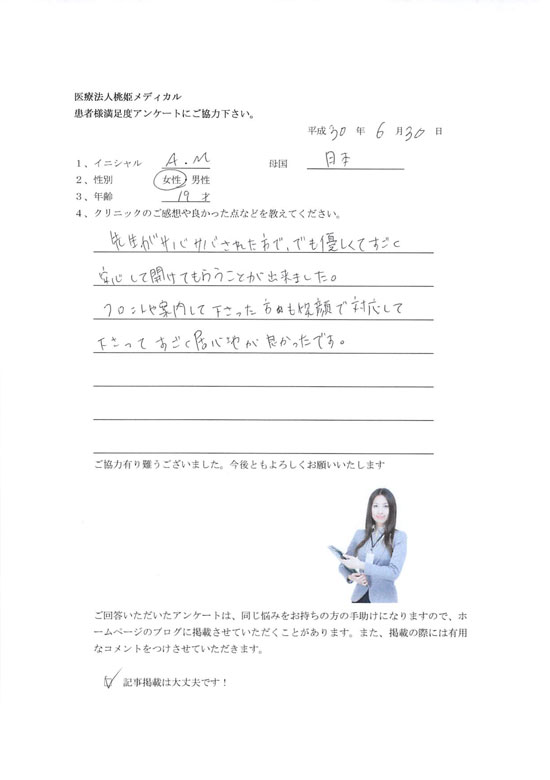 医療法人桃姫メディカル
患者様満足度アンケートにご協力下さい。
平成 30 年 6 月 30 日
1、イニシャル A.M 母国 日本
2、性別 女性・男性
3、年齢 19 才
4、クリニックのご感想や良かった点などを教えてください。
先生がサバサバされた方で、でも優しくてすごく
安心して開けてもらうことが出来ました。
フロントや案内して下さった方々も笑顔で対応して
下さってすごく居心地が良かったです。
ご協力有り難うございました。今後ともよろしくお願いいたします
ご回答いただいたアンケートは、同じ悩みをお持ちの方の手助けになりますので、ホ
ームページのブログに掲載させていただくことがあります。また、掲載の際には有用
なコメントをつけさせていただきます。
記事掲載は大丈夫です！